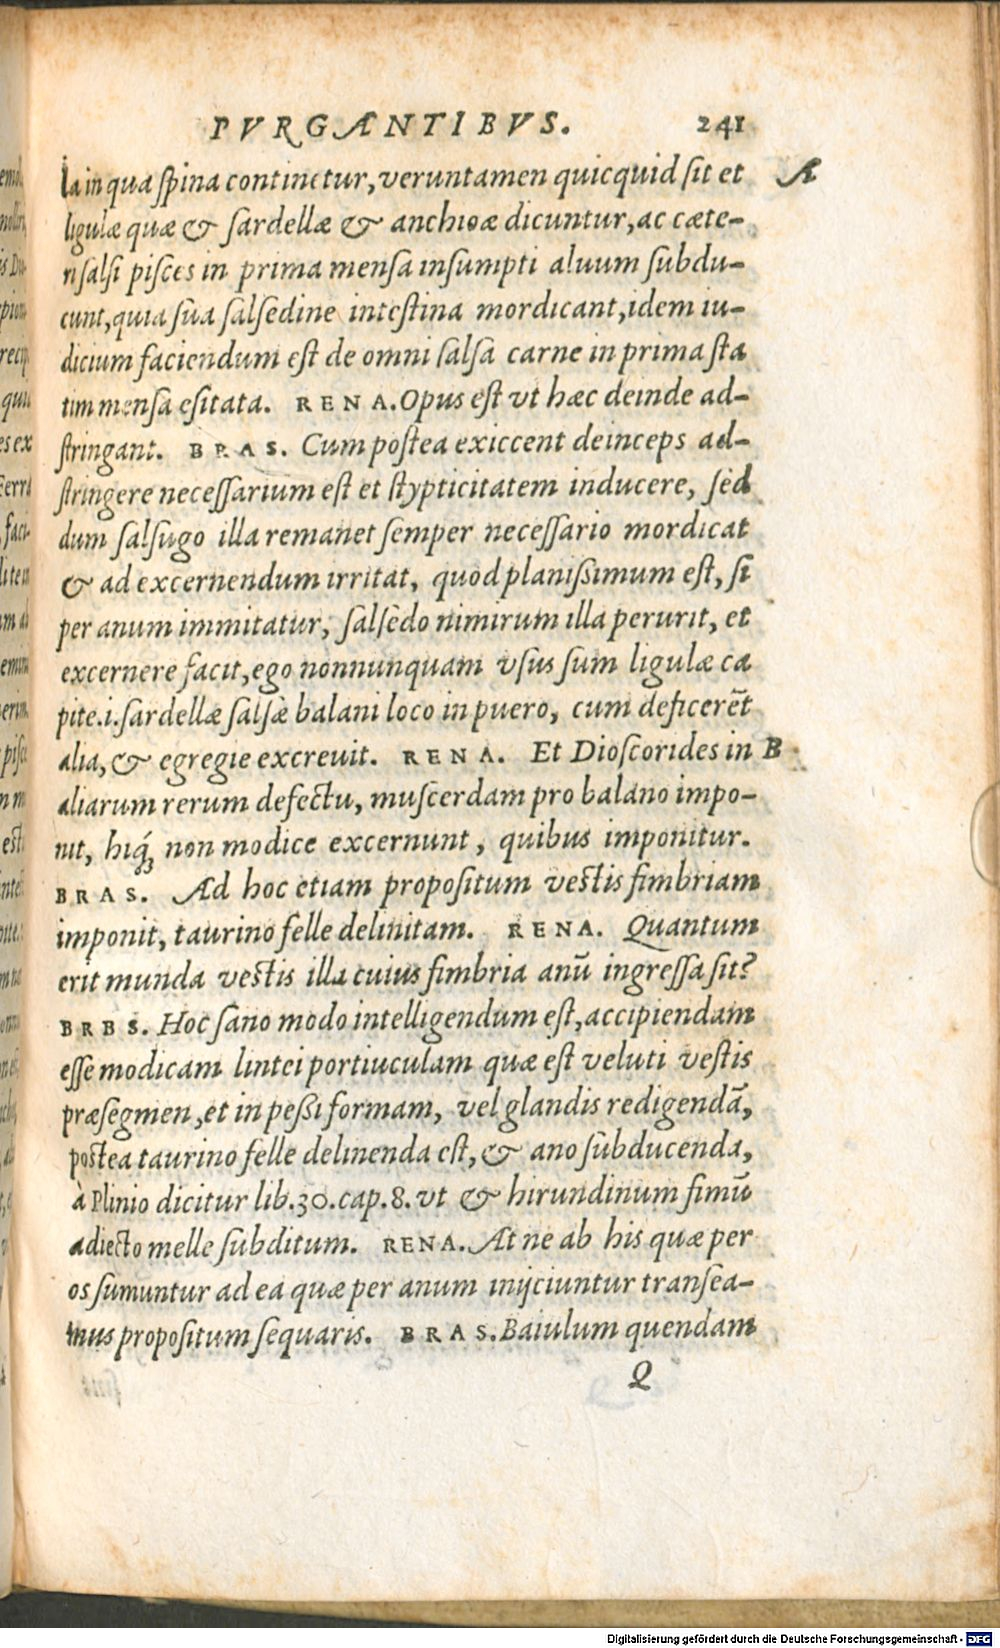 PVRGANTIBVS. 241
la in qua spina continetur, veruntamen quicquid sit et A
ligulæ quæ & sardellæ & anchioæ dicuntur, ac cæte-
ri salsi pisces in prima mensa insumpti aluum subdu-
cunt, quia sua salsedine intestina mordicant, idem iu-
dicium faciendum est de omni salsa carne in prima sta
tim mensa esitata. RENA. Opus est vt hæc deinde ad-
stringant. BRAS. Cum postea exiccent deinceps ad-
stringere necessarium est et stypticitatem inducere, sed
dum salsugo illa remanet semper necessario mordicat
& ad excernendum irritat, quod planissimum est, si
per anum immitatur, salsedo nimirum illa perurit, et
excernere facit, ego nonnunquam vsus sum ligulæ ca
pite.i.sardellæ salsæ balani loco in puero, cum deficerēt
alia, & egregie excreuit. RENA. Et Dioscorides in B
aliarum rerum defectu, muscerdam pro balano impo-
nit, hiq́; non modice excernunt, quibus imponitur.
BRAS. Ad hoc etiam propositum vestis fimbriam
imponit, taurino felle delinitam. RENA. Quantum
erit munda vestis illa cuius fimbria anū ingressa sit?
BRBS. Hoc sano modo intelligendum est, accipiendam
esse modicam lintei portiuculam quæ est veluti vestis
præsegmen, et in pessi formam, vel glandis redigendā,
postea taurino felle delinenda est, & ano subducenda,
à Plinio dicitur lib.30.cap.8. vt & hirundinum fimū
adiecto melle subditum. RENA. At ne ab his quæ per
os sumuntur ad ea quæ per anum inijciuntur transea-
mus propositum sequaris. BRAS. Baiulum quendam
Q
Digitalisierung gefördert durch die Deutsche Forschungsgemeinschaft - DFG